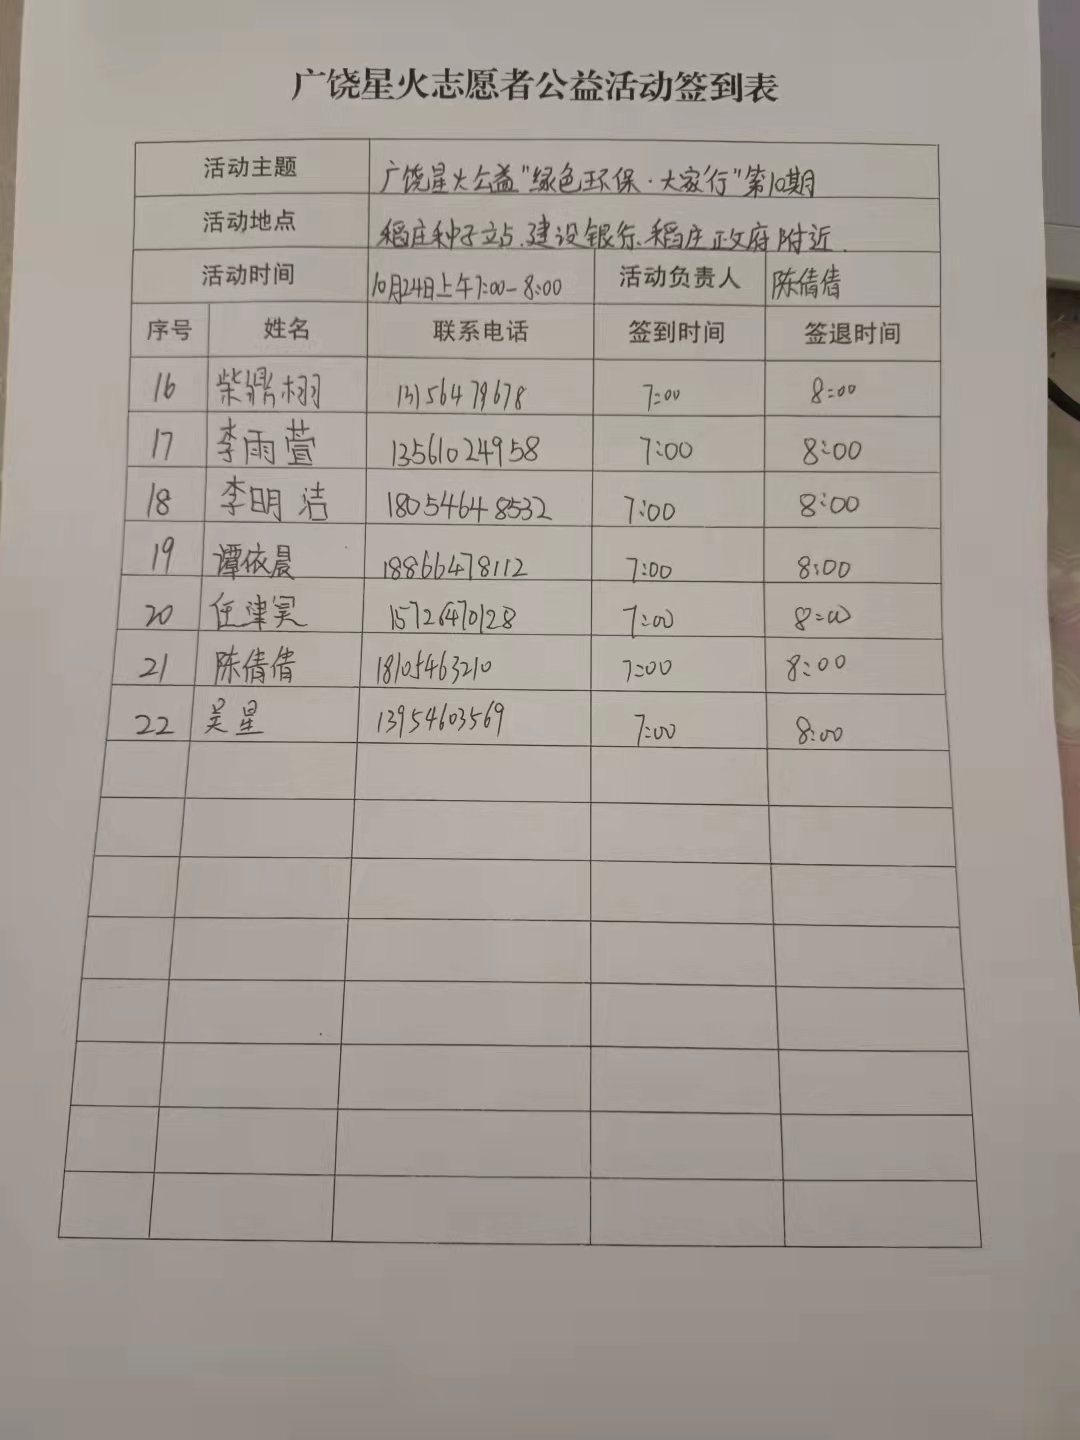 广饶星火志愿者公益活动签到表
活动主题 广饶星火公益"绿色环保·大家行"第10期
活动地点 稻庄种子立占、建设银行、稻庄政府附近.
活动时间 10月24日上午7:00-8:00 活动负责人 陈倩倩
序号 姓名 联系电话 签到时间 签退时间
16 柴鼎栩 13156479678 7:00 8:00
17 李雨萱 13561024958 7:00 8:00
18 李明洁 18054648532 7:00 8:00
19 谭依晨 18866478112 7:00 8:00
20 任津昊 15726470128 7:00 8:00
21 陈倩倩 18105463210 7:00 8:00
22 吴星 13954603569 7:00 8:00